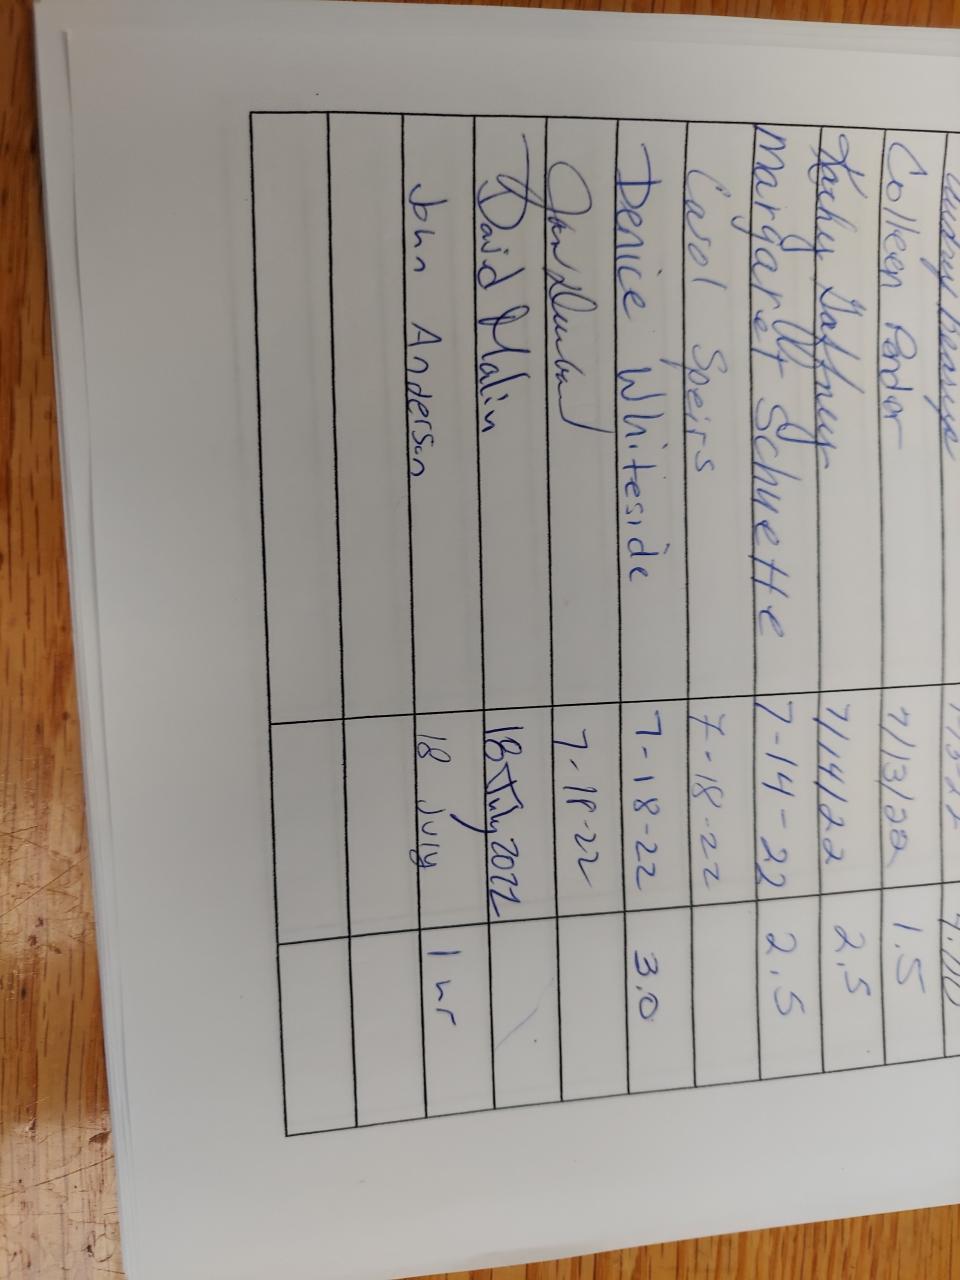 7-13-22 4.00
Colleen Pondar 7/13/22 1.5
Kathy Gaffney 7/14/22 2.5
Margaret Schuette 7-14-22 2.5
Carol Speirs 7-18-22
Denice Whiteside 7-18-22 3.0
7-18-22
David Malin 18 July 2022
John Anderson 18 July 1 hr